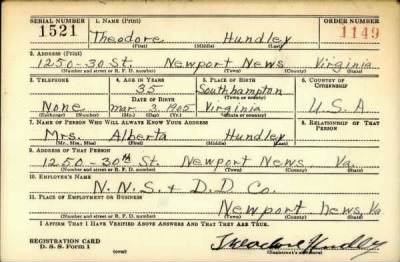 SERIAL NUMBER 1. NAME (Print) ORDER NUMBER
1521 Theodore Hundley 1149
(First) (Middle) (Last)
2. ADDRESS (Print)
1250-30 St. Newport News Virginia
(Number and street or R. F. D. number) (Town) (County) (State)
3. TELEPHONE 4. AGE IN YEARS 5. PLACE OF BIRTH 6. COUNTRY OF CITIZENSHIP
35 Southhampton
DATE OF BIRTH (Town or county)
None Mar. 3 1905 Virginia U.S.A
(Exchange) (Number) (Mo.) (Day) (Yr.) (State or country)
7. NAME OF PERSON WHO WILL ALWAYS KNOW YOUR ADDRESS 8. RELATIONSHIP OF THAT PERSON
Mrs. Alberta Hundley
(Mr., Mrs., Miss) (First) (Middle) (Last)
9. ADDRESS OF THAT PERSON
1250-30th St. Newport News, Va.
(Number and street or R. F. D. number) (Town) (County) (State)
10. EMPLOYER'S NAME
N.N.S. & D.D Co.
11. PLACE OF EMPLOYMENT OR BUSINESS
Newport News Va
(Number and street or R. F. D. number) (Town) (County) (State)
I AFFIRM THAT I HAVE VERIFIED ABOVE ANSWERS AND THAT THEY ARE TRUE.
REGISTRATION CARD
D. S. S. Form 1 (over) Theodore Hundley
(Registrant's signature)